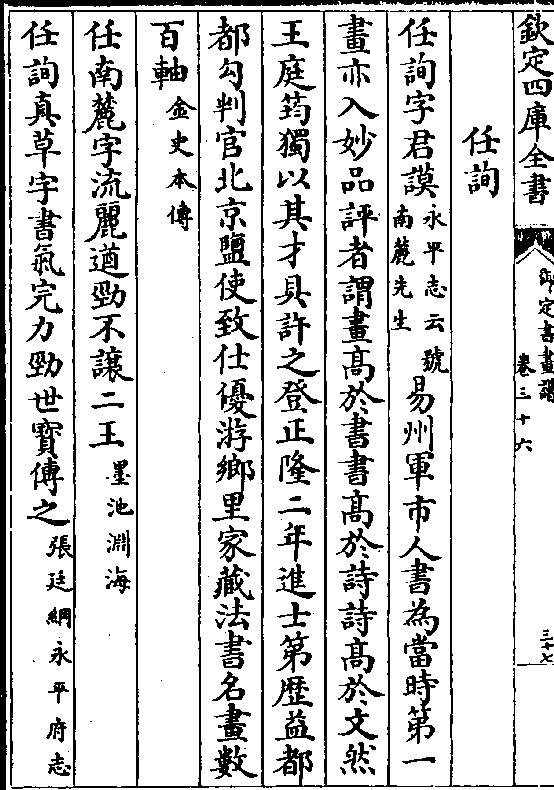 欽定四庫全書
御定書畫譜
卷三十六
三十七
任詢
任詢字君謨永平志云號南麓先生易州軍市人書為當時第一
畫亦入妙品評者謂畫髙於書書髙於詩詩髙於文然
王庭筠獨以其才具許之登正隆二年進士第歴益都
都勾判官北京鹽使致仕優游鄉里家藏法書名畫數
百軸金史本傳
任南麓字流麗遒勁不讓二王墨池淵海
任詢真草字書氣完力勁世寳傳之張廷綱永平府志